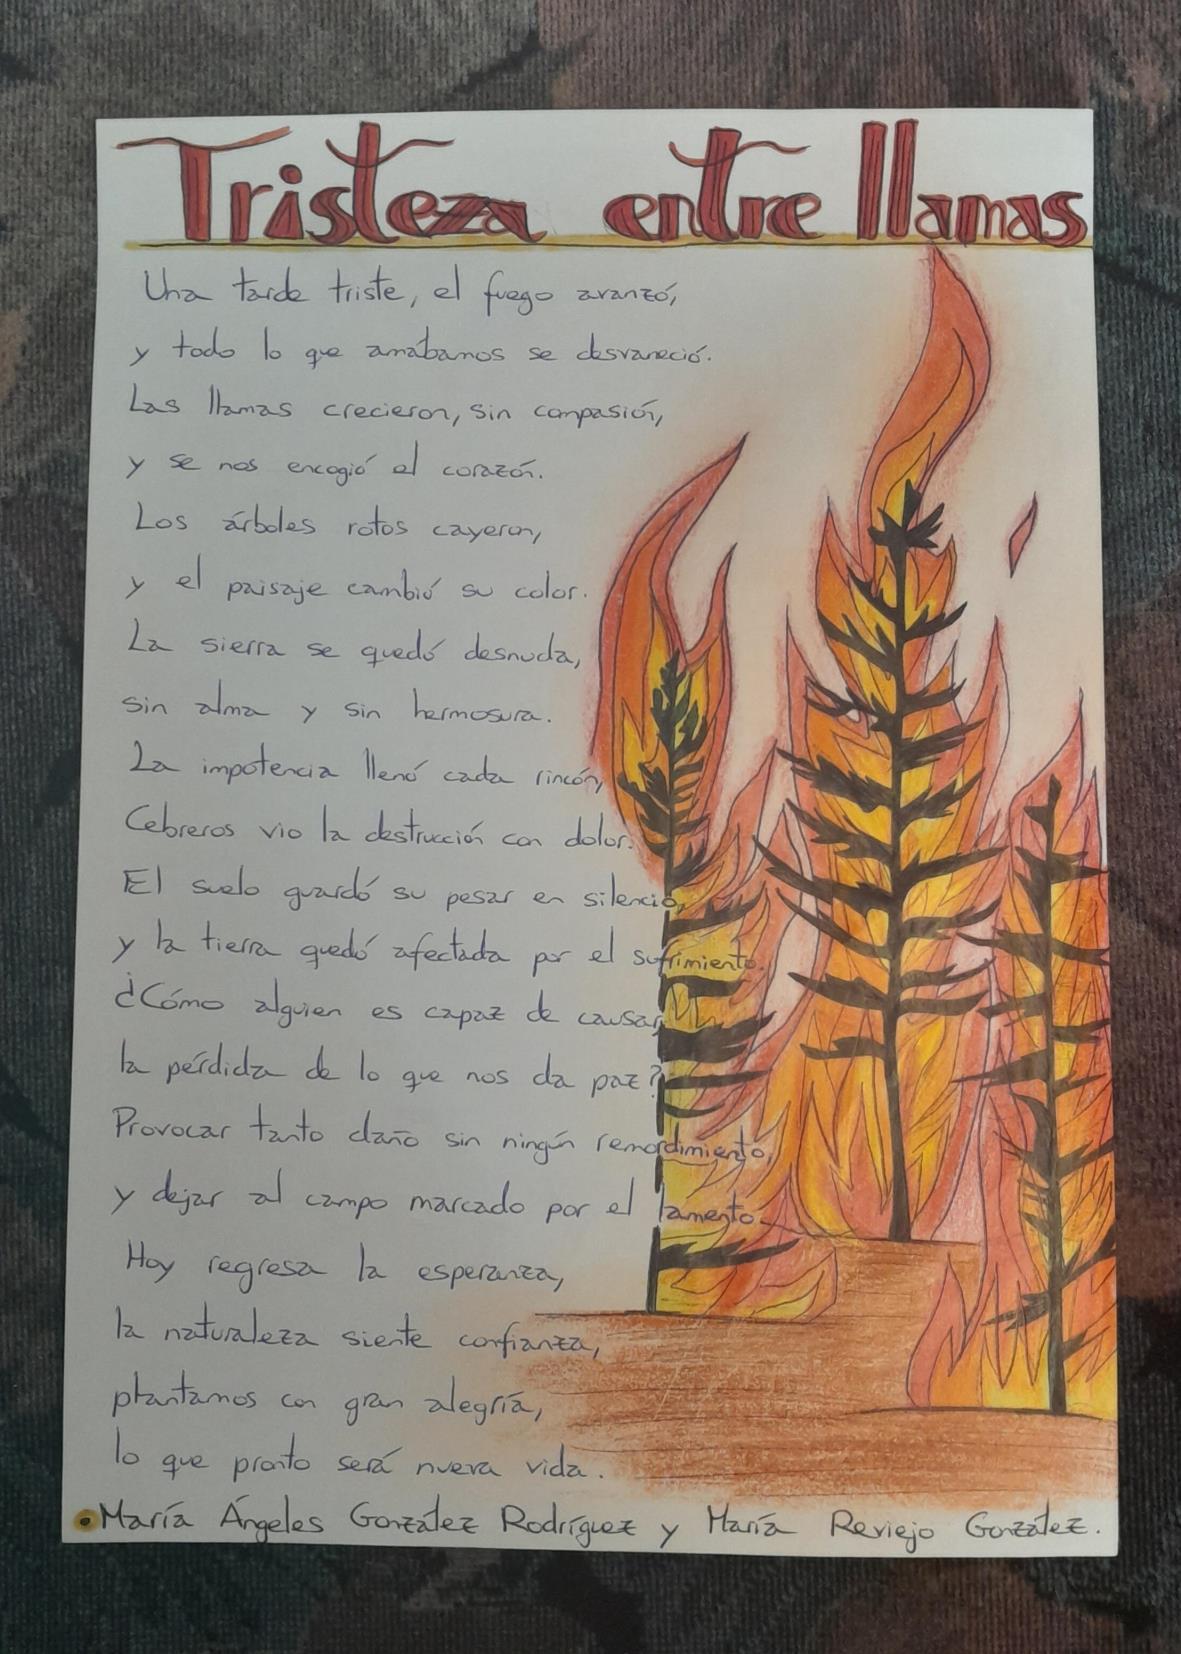 Tristeza entre llamas
Una tarde triste, el fuego avanzó,
y todo lo que amábamos se desvaneció.
Las llamas crecieron, sin compasión,
y se nos encogió el corazón.
Los árboles rotos cayeron,
y el paisaje cambió su color.
La sierra se quedó desnuda,
sin alma y sin hermosura.
La impotencia llenó cada rincón,
Cebreros vio la destrucción con dolor.
El suelo guardó su pesar en silencio,
y la tierra quedó afectada por el sufrimiento.
¿Cómo alguien es capaz de causar,
la pérdida de lo que nos da paz?
Provocar tanto daño sin ningún remordimiento,
y dejar al campo marcado por el lamento.
Hoy regresa la esperanza,
la naturaleza siente confianza,
plantamos con gran alegría,
lo que pronto será nueva vida.
María Ángeles González Rodríguez y María Reviejo González.